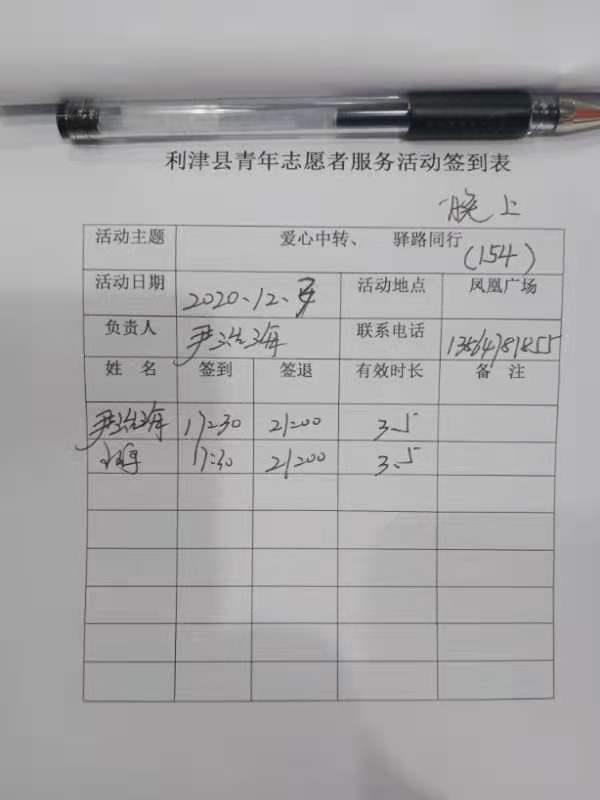 利津县青年志愿者服务活动签到表
晚上
活动主题 爱心中转、 驿路同行
(154)
活动日期 2020.12. 活动地点 凤凰广场
负责人 尹浩海 联系电话
姓名 签到 签退 有效时长 备注
尹浩海 17:30 21:00 3.5
17:30 21:00 3.5